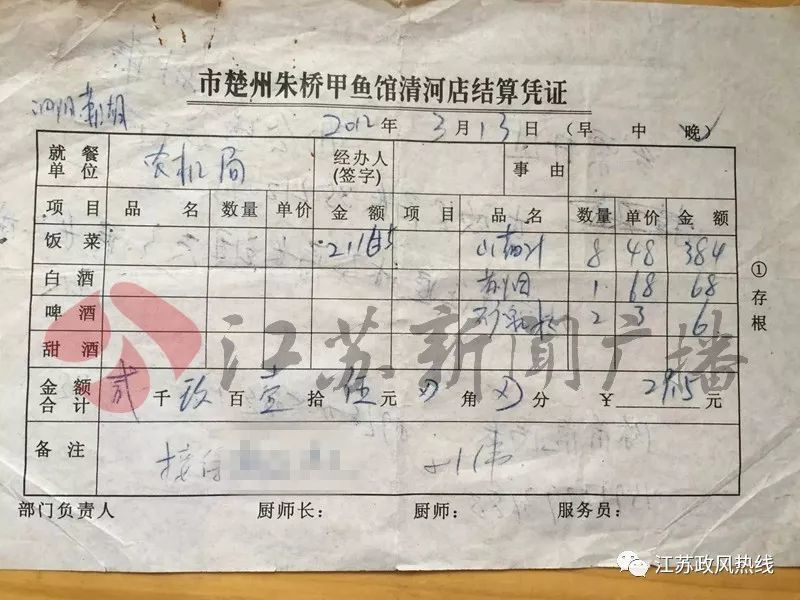 市楚州朱桥甲鱼馆清河店结算凭证
2012年 3月13日（早 中 晚）
就餐单位 农机局 经办人(签字) 事由
项目 品名 数量 单价 金额 项目 品名 数量 单价 金额
饭菜 8 48 384
白酒 苏烟 1 68 68
啤酒 矿泉水 2 3 6
甜酒
金额合计 贰千玖百壹拾伍元 角 分 ￥2915元
备注 接待
①存根
部门负责人 厨师长： 厨师： 服务员：
江苏新闻广播
江苏政风热线